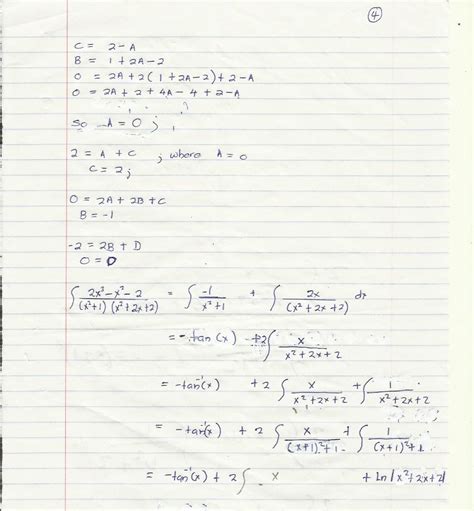 ④
C = 2-A
B = 1+2A-2
0 = 2A+2(1+2A-2)+2-A
0 = 2A+2+4A-4+2-A
so A=0;
2 = A+C ; where A=0
C = 2;
0 = 2A+2B+C
B = -1
-2 = 2B+D
0 = D
∫ 2x³-x²-2 / (x²+1)(x²+2x+2) = ∫ -1 / x²+1 + ∫ 2x / (x²+2x+2) dx
= -tan(x) +2∫ x / x²+2x+2
= -tan⁻¹(x) +2∫ x / x²+2x+2 +∫ 1 / x²+2x+2
= -tan⁻¹(x) +2∫ x / (x+1)²+1 +∫ 1 / (x+1)²+1
= -tan⁻¹(x) +2∫ x + ln|x²+2x+2|